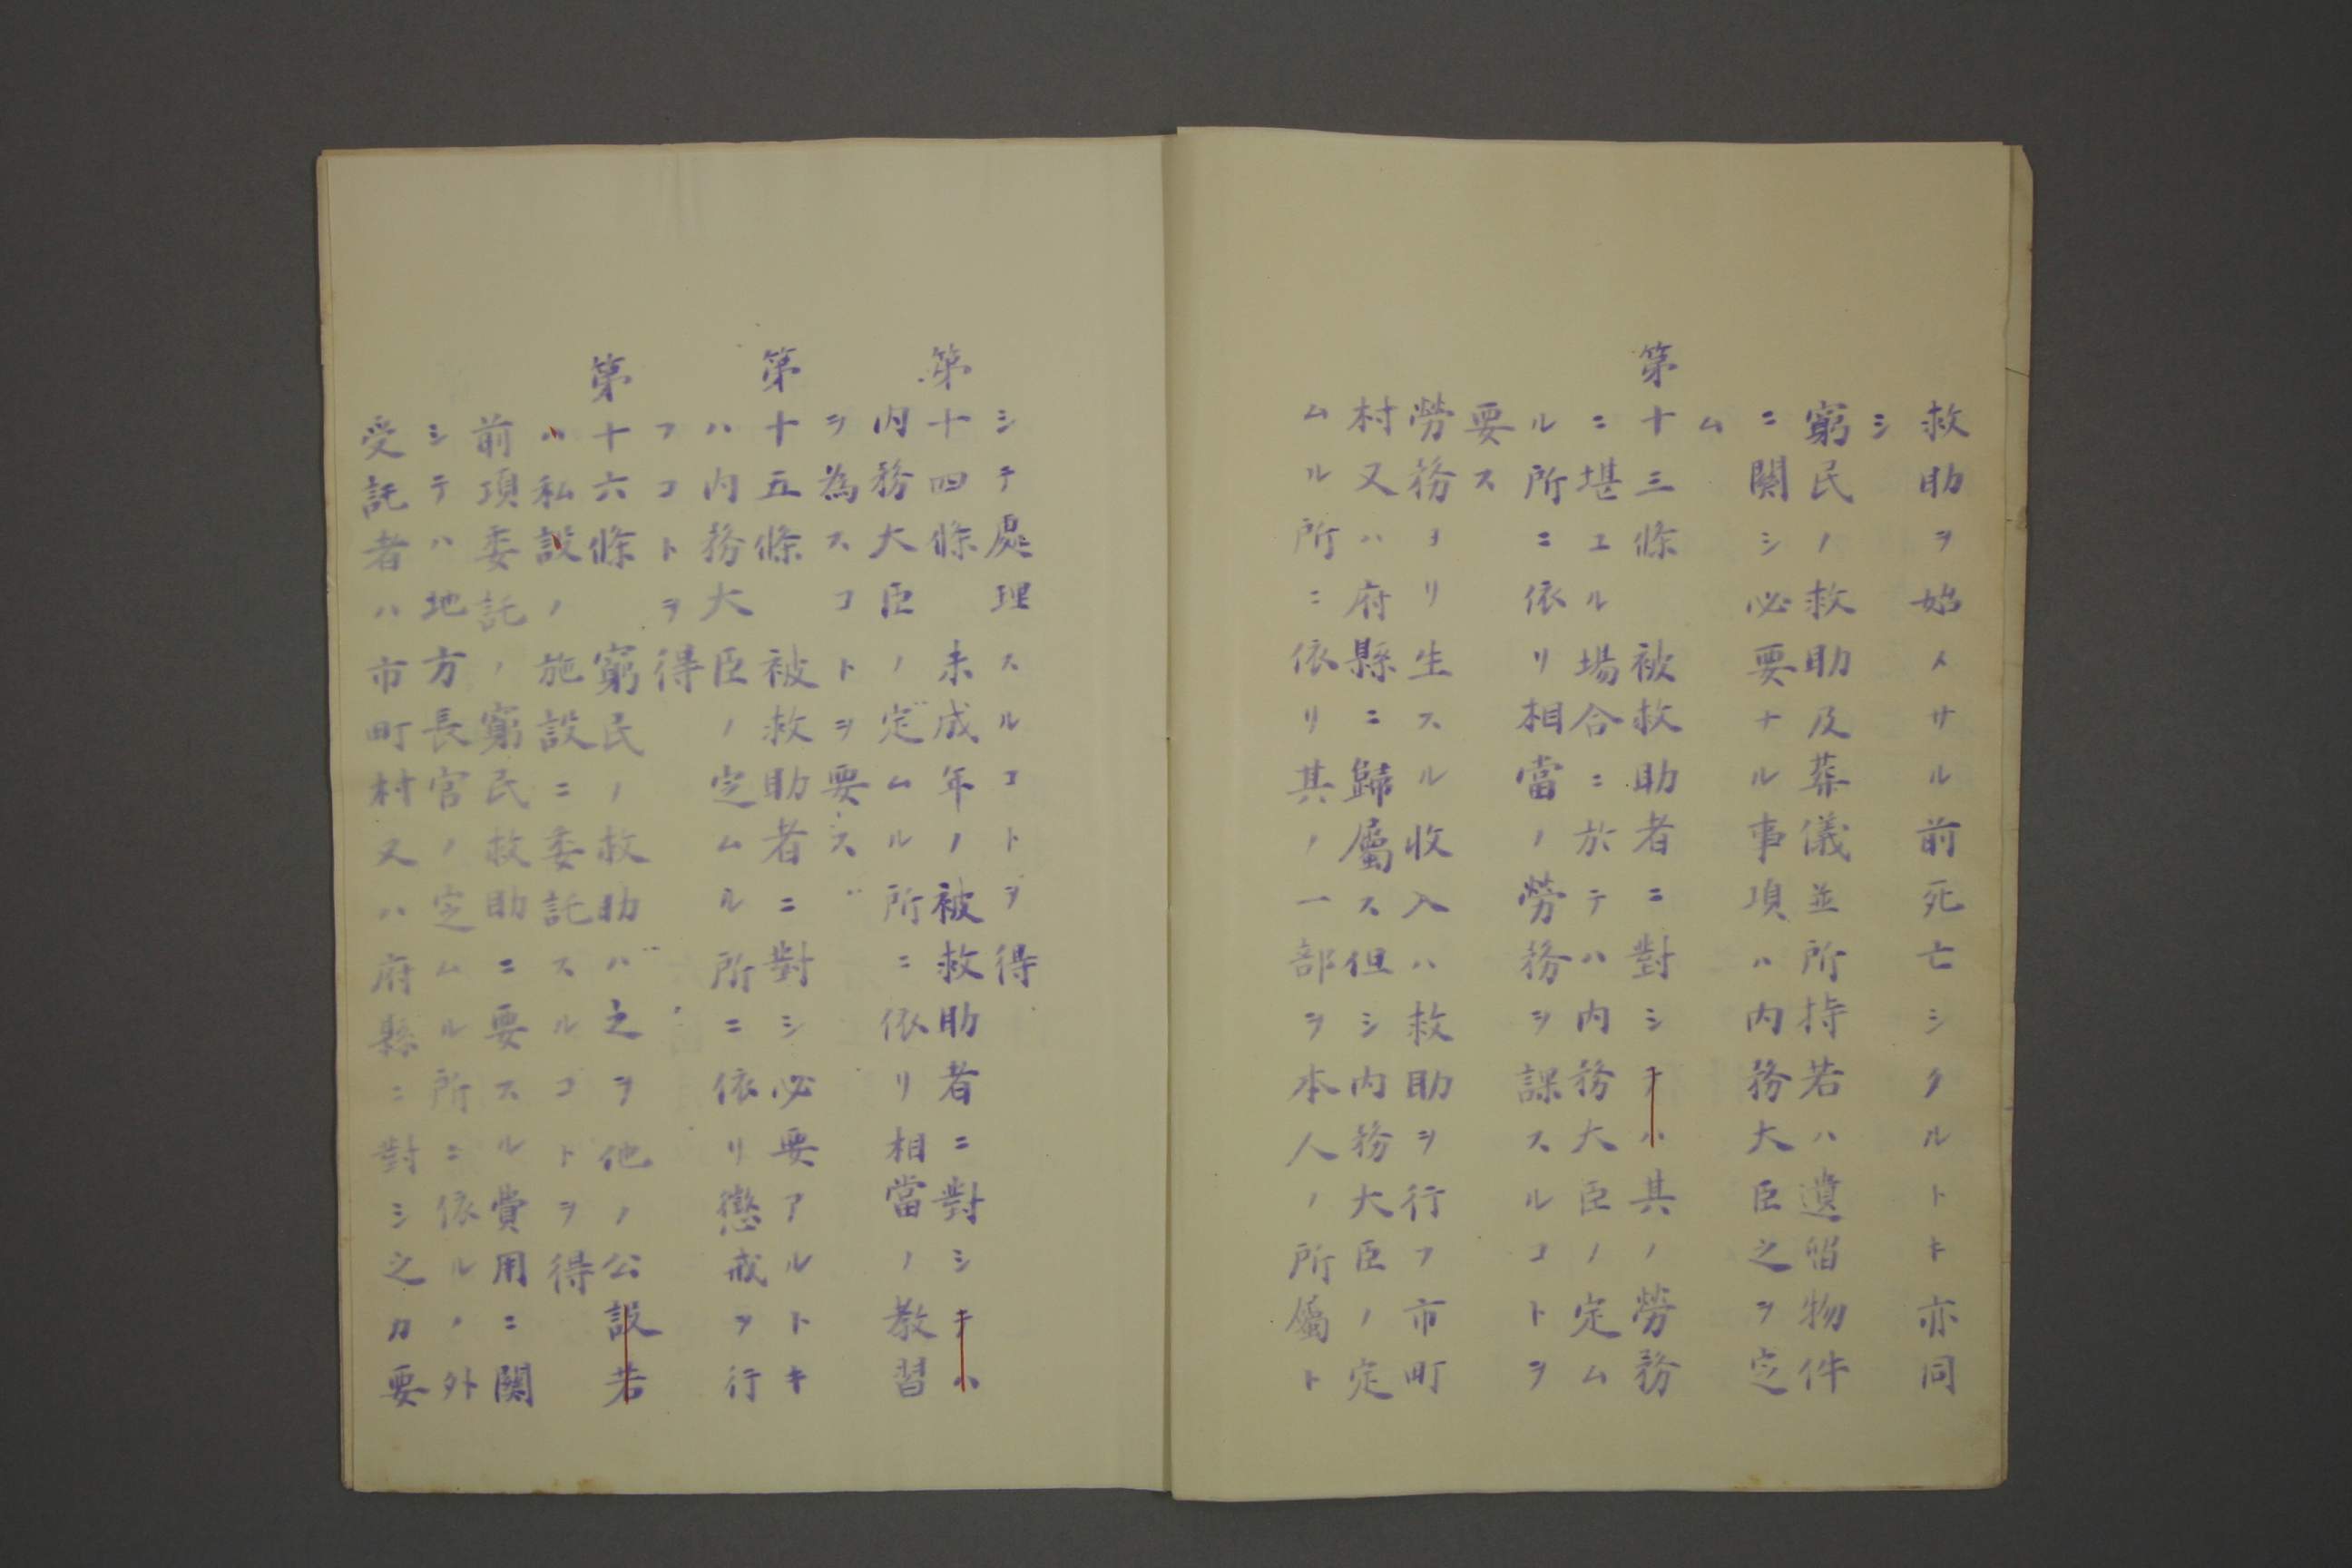 救助ヲ始メサル前死亡シタルトキ亦同
シ
窮民ノ救助及葬儀並所持若ハ遺留物件
ニ關シ必要ナル事項ハ内務大臣之ヲ定
ム
第十三條　被救助者ニ對シテハ其ノ勞務
ニ堪エル場合ニ於テハ内務大臣ノ定ム
ル所ニ依リ相當ノ勞務ヲ課スルコトヲ
要ス
勞務ヨリ生スル收入ハ救助ヲ行フ市町
村又ハ府縣ニ歸屬ス但シ内務大臣ノ定
ムル所ニ依リ其ノ一部ヲ本人ノ所屬ト
シテ處理スルコトヲ得
第十四條　未成年ノ被救助者ニ對シテハ
内務大臣ノ定ムル所ニ依リ相當ノ教習
ヲ為スコトヲ要ス
第十五條　被救助者ニ對シ必要アルトキ
ハ内務大臣ノ定ムル所ニ依リ懲戒ヲ行
フコトヲ得
第十六條　窮民ノ救助ハ之ヲ他ノ公設若
ハ私設ノ施設ニ委託スルコトヲ得
前項委託ノ窮民救助ニ要スル費用ニ關
シテハ地方長官ノ定ムル所ニ依ルノ外
受託者ハ市町村又ハ府縣ニ對シ之カ要